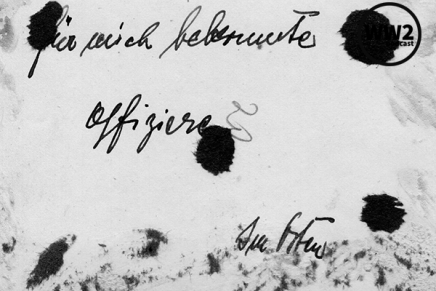 für mich bekannte
WW2
cast
Offiziere
Im Osten